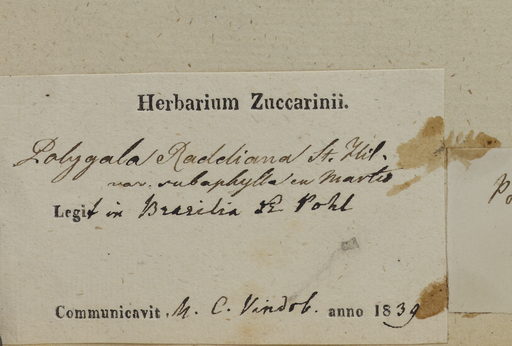 Herbarium Zuccarinii.
Polygala Raddiana St. Hil.
var. subaphylla ex Martio
Legit in Brasilia Pohl
Communicavit M. C. Vindob. anno 1839